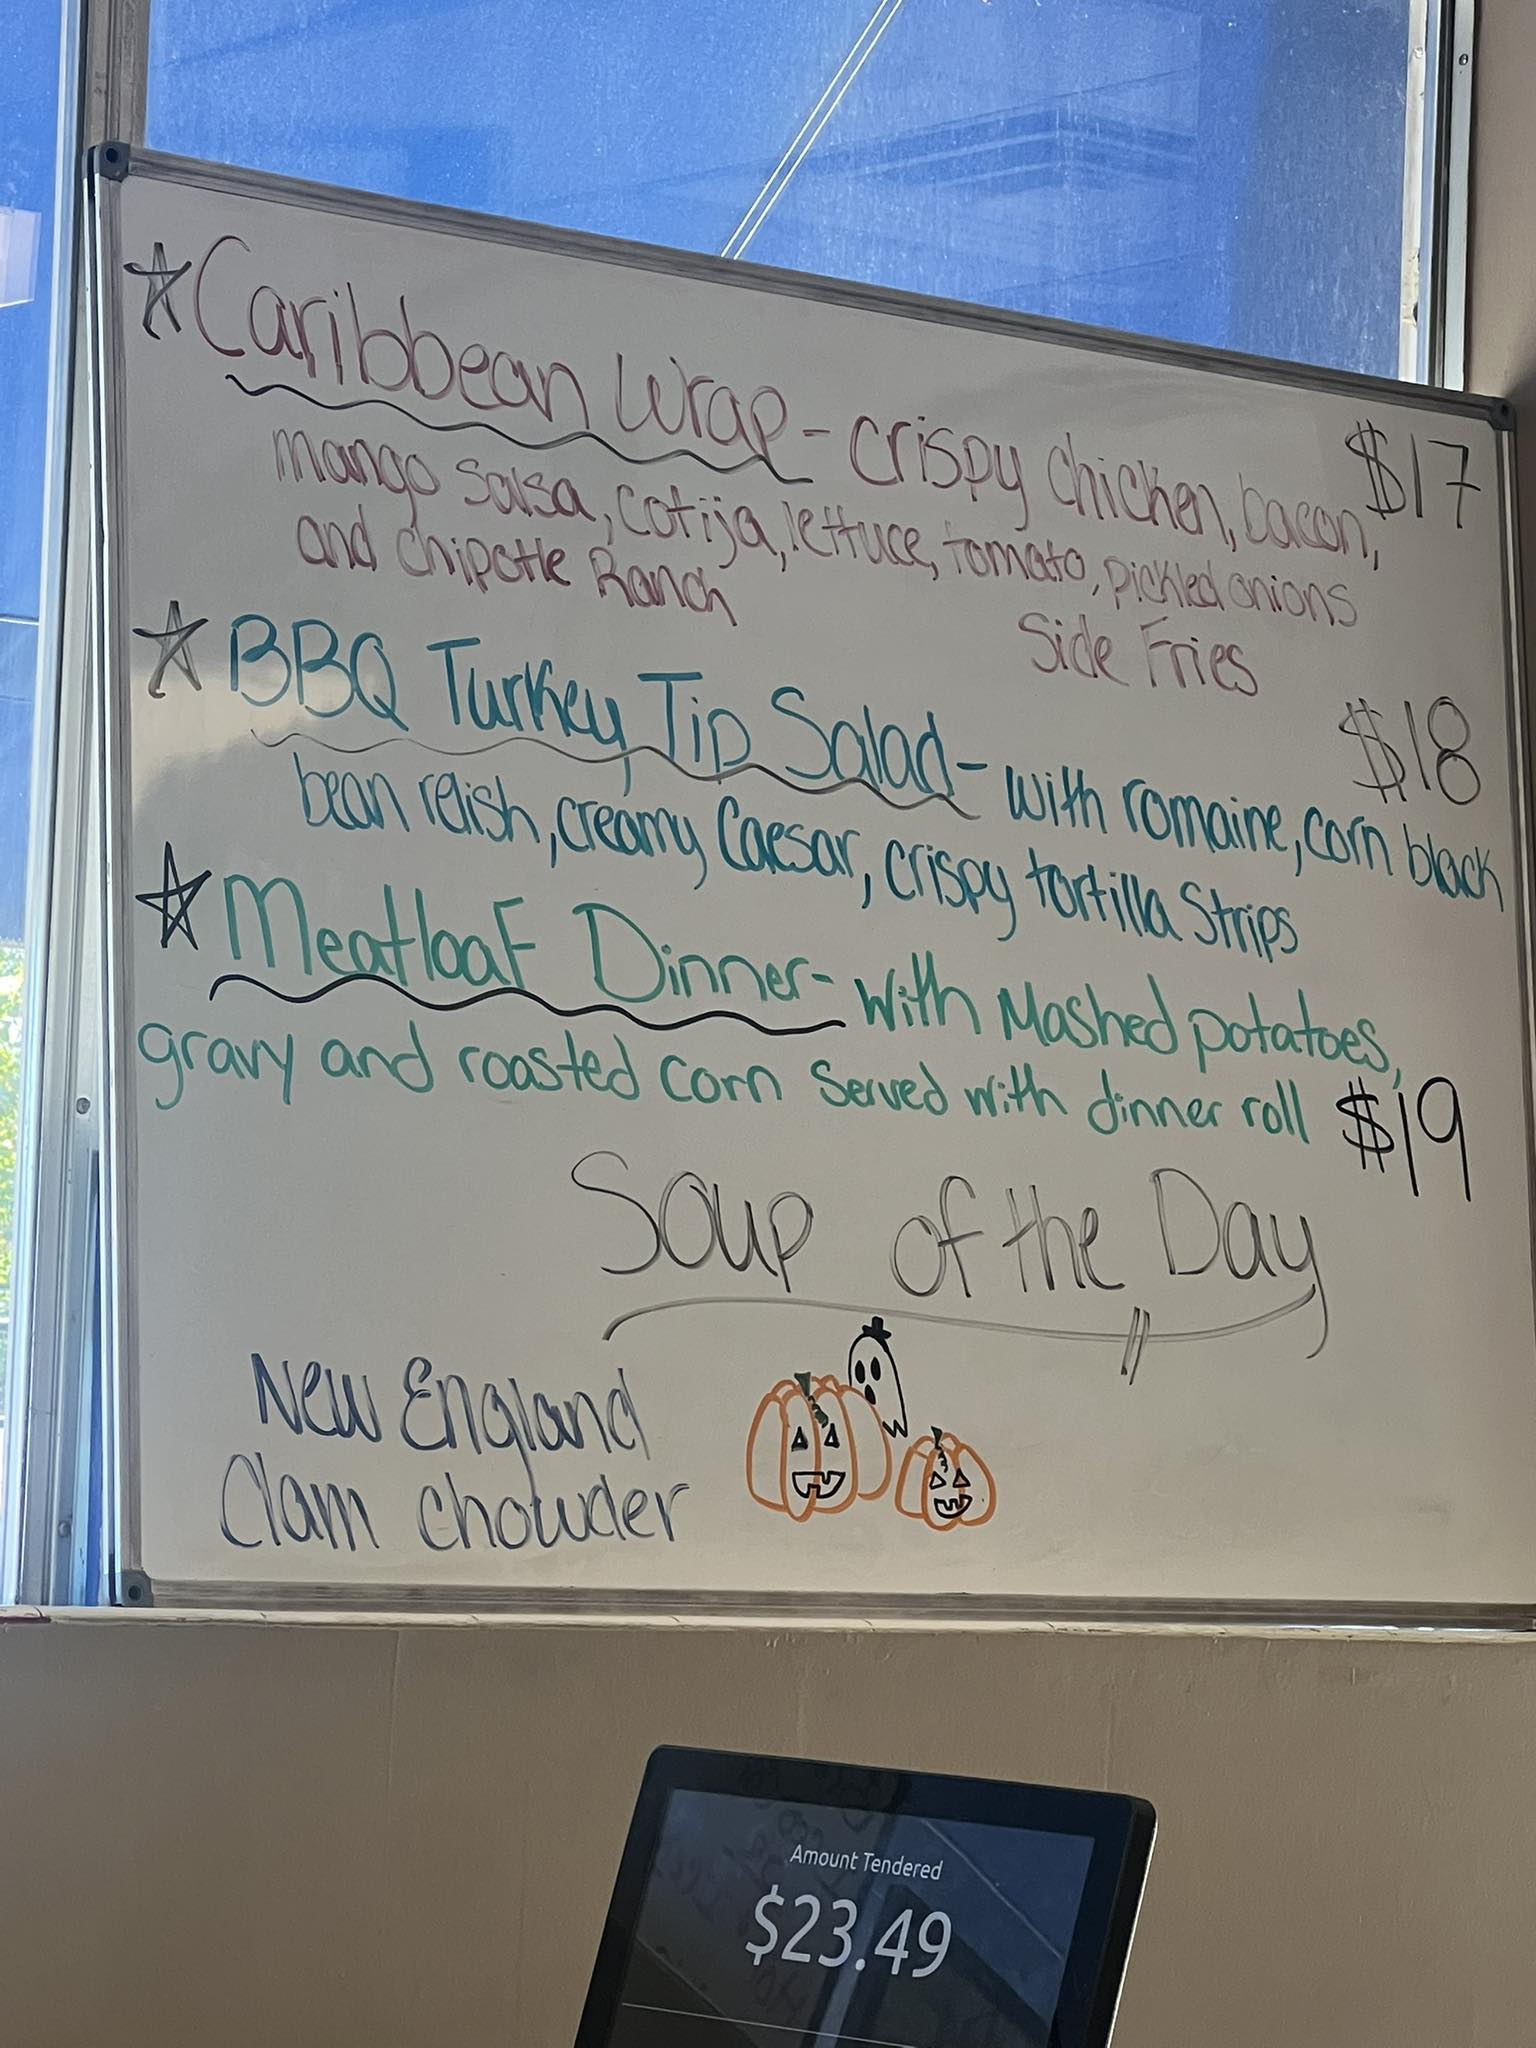 Caribbean Wrap - crispy chicken, bacon, $17
mango salsa, cotija, lettuce, tomato, pickled onions
and chipotle Ranch
Side Fries
BBQ Turkey Tip Salad - with romaine, corn black $18
bean relish, creamy Caesar, crispy tortilla Strips
Meatloaf Dinner - with Mashed potatoes,
gravy and roasted corn Served with dinner roll $19
Soup of the Day
New England
Clam chowder
Amount Tendered
$23.49